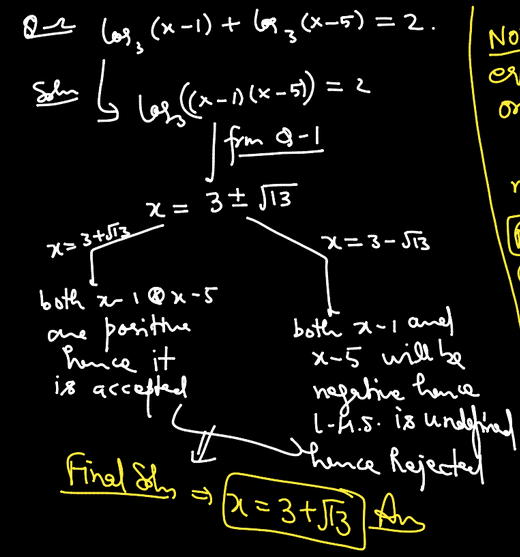 Q-2 log₃(x-1) + log₃(x-5) = 2.
Soln log₃((x-1)(x-5)) = 2
from Q-1
x = 3 ± √13
x = 3+√13
x = 3-√13
both x-1 & x-5
are positive
hence it
is accepted
both x-1 and
x-5 will be
negative hence
L.H.S. is undefined
hence Rejected
Final Soln ⇒ x = 3+√13 Ans
NO
er
or